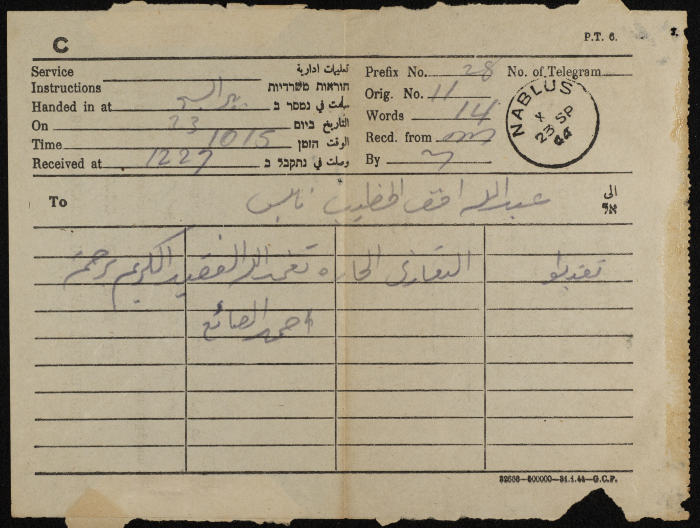 C
P.T. 6.
Service تعليمات ادارية
Instructions הוראות משרדיות
Handed in at بئر السبع سلمت في נמסר ב
On 23 التاريخ ביום
Time 1015 الوقت הזמן
Received at 1227 وصلت في נתקבל ב
Prefix No. 28 No. of Telegram
Orig. No. 11
Words 14
Recd. from
By
NABLUS
X
23 SP
To عبد الله افندي الخطيب نابلس الى
אל
تقبلوا التعازي الحاره تغمد الله الفقيد الكريم برحمته
احمد الصائغ
32656—500000—31.1.44—G.C.P.